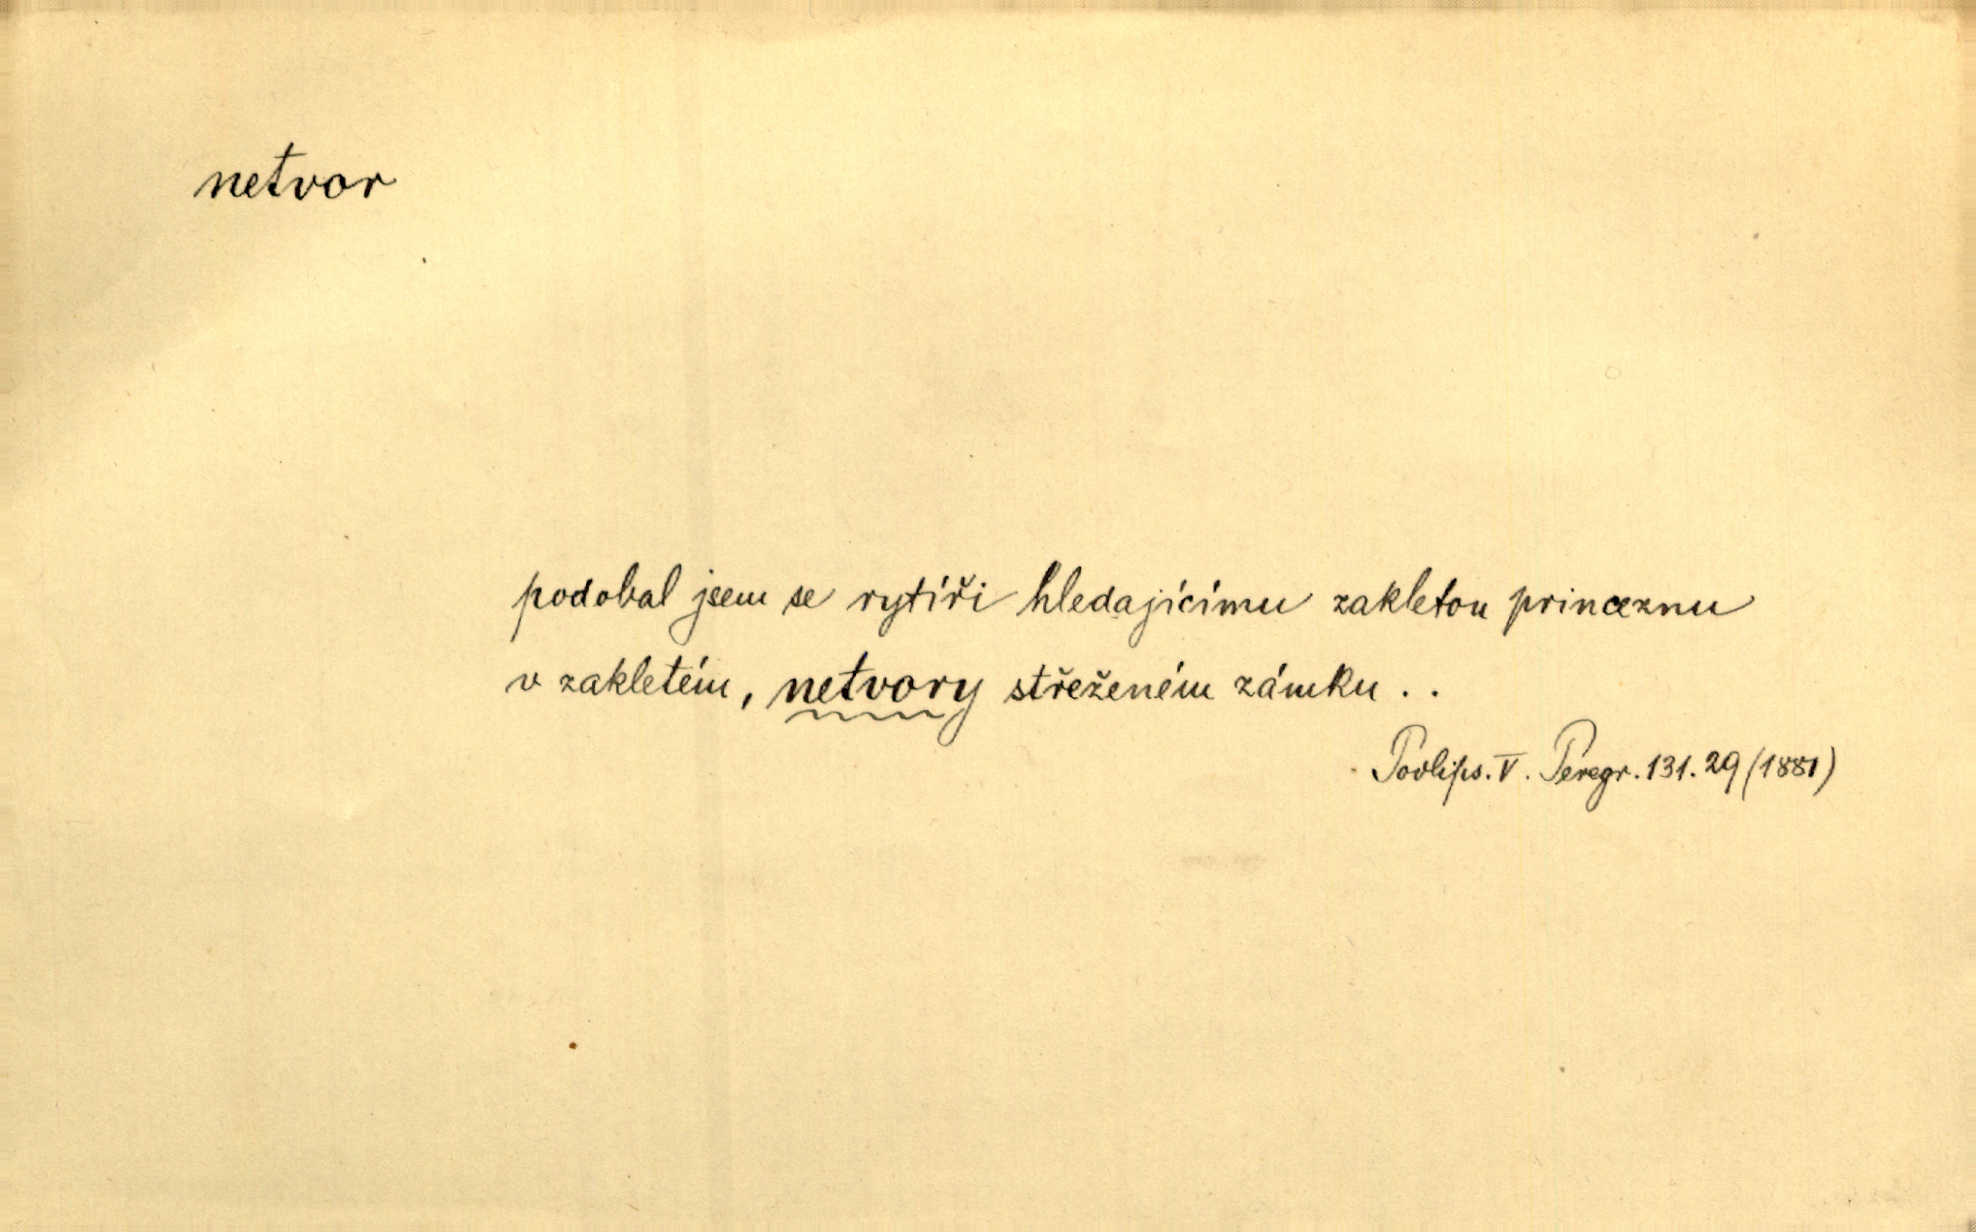 netvor
podobal jsem se rytíři hledajícímu zakletou princeznu
v zakletém, netvory střeženém zámku . .
Podlips. V. Peregr. 131. 29 (1881)